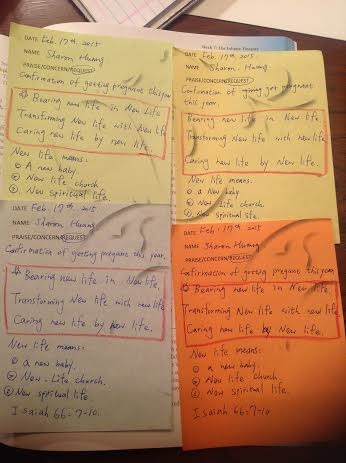 Week 7: The Inherent Treasury
DATE Feb. 17th 2015
NAME Sharon Huang
PRAISE/CONCERN/REQUEST
Confirmation of getting pregnant this year
☆ Bearing new life in New Life
Transforming New life with New life
Caring new life by new life.
New life means:
① A new baby.
② New life church.
③ New spiritual life.
DATE Feb. 17th, 2015.
NAME Sharon. Huang
PRAISE/CONCERN/REQUEST
this year.
Bearing new life in New life.
Transforming New life with new life.
Caring new life by New life.
New life means:
① a New baby.
② New Life church.
③ New spiritual life.
DATE Feb. 17th 2015
NAME Sharon Huang
PRAISE/CONCERN/REQUEST
Confirmation of getting pregane this year.
☆ Bearing new life in New life.
Transforming New life with new life
Caring new life by New life.
New life means:
① a new baby.
② New-Life church.
③ New spiritual life.
Isaiah 66:7-10.
DATE Feb. 17th 2015
NAME Sharon Huang
PRAISE/CONCERN/REQUEST
Confirmation of getting pregane this year
☆ Bearing new life in New life.
Transforming New life with new life.
Caring new life by New life.
New life means:
① a new baby.
② New life church.
③ New spiritual life.
Isaiah 66:7-10.